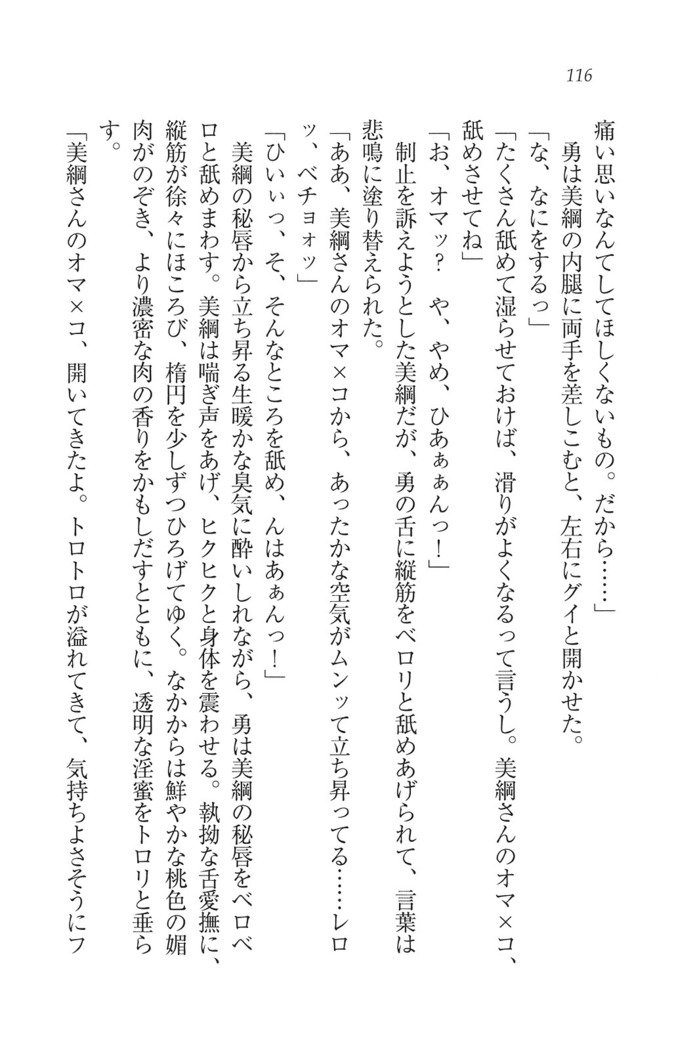 116
痛い思いなんてしてほしくないもの。だから……」
勇は美綱の内腿に両手を差しこむと、左右にグイと開かせた。
「な、なにをするっ」
「たくさん舐めて湿らせておけば、滑りがよくなるって言うし。美綱さんのオマ×コ、
舐めさせてね」
「お、オマッ？　や、やめ、ひあぁぁんっ！」
制止を訴えようとした美綱だが、勇の舌に縦筋をベロリと舐めあげられて、言葉は
悲鳴に塗り替えられた。
「ああ、美綱さんのオマ×コから、あったかな空気がムンッて立ち昇ってる……レロ
ッ、ベチョォッ」
「ひいぃっ、そ、そんなところを舐め、んはあぁんっ！」
美綱の秘唇から立ち昇る生暖かな臭気に酔いしれながら、勇は美綱の秘唇をベロベ
ロと舐めまわす。美綱は喘ぎ声をあげ、ヒクヒクと身体を震わせる。執拗な舌愛撫に、
縦筋が徐々にほころび、楕円を少しずつひろげてゆく。なかからは鮮やかな桃色の媚
肉がのぞき、より濃密な肉の香りをかもしだすとともに、透明な淫蜜をトロリと垂ら
す。
「美綱さんのオマ×コ、開いてきたよ。トロトロが溢れてきて、気持ちよさそうにフ